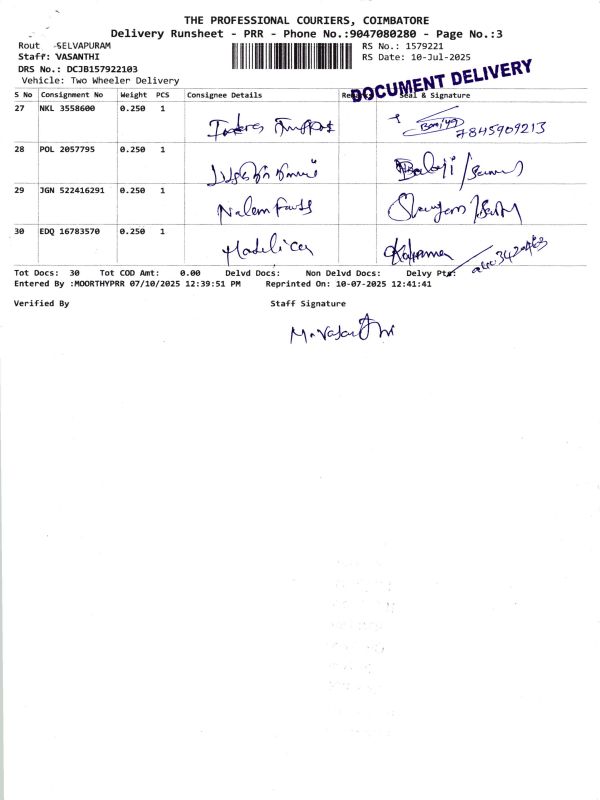 THE PROFESSIONAL COURIERS, COIMBATORE
Delivery Runsheet - PRR - Phone No.:9047080280 - Page No.:3
Rout -SELVAPURAM
RS No.: 1579221
Staff: VASANTHI
RS Date: 10-Jul-2025
DRS No.: DCJB157922103
Vehicle: Two Wheeler Delivery
DOCUMENT DELIVERY
S No Consignment No Weight PCS Consignee Details Seal & Signature
27 NKL 3558600 0.250 1
7845909213
28 POL 2057795 0.250 1
Balaji
29 JGN 522416291 0.250 1
30 EDQ 16783570 0.250 1
Tot Docs: 30 Tot COD Amt: 0.00 Delvd Docs: Non Delvd Docs: Delvy Pts:
Entered By :MOORTHYPRR 07/10/2025 12:39:51 PM Reprinted On: 10-07-2025 12:41:41
Verified By Staff Signature
M.Vasanthi